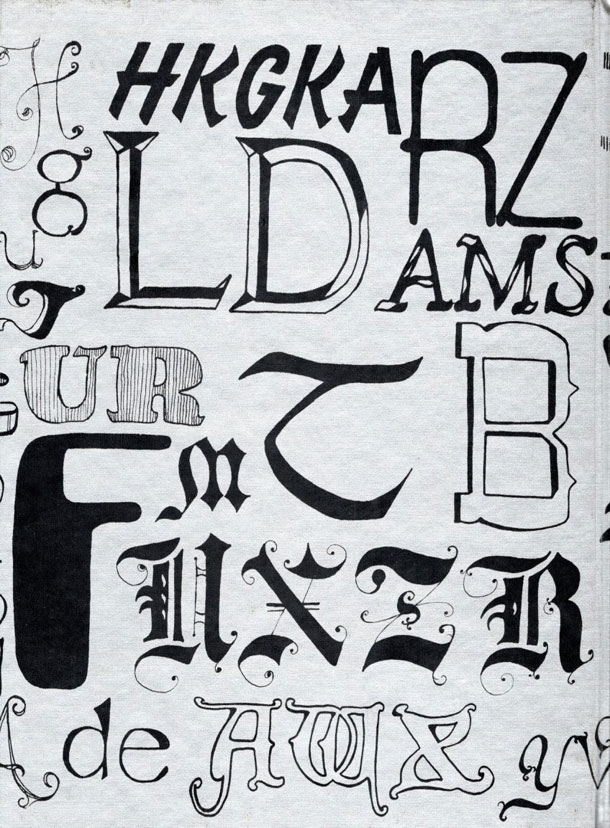 H HKGKA RZ
g LD
u AMS
UR T B
F m
UXZR
de AWX y